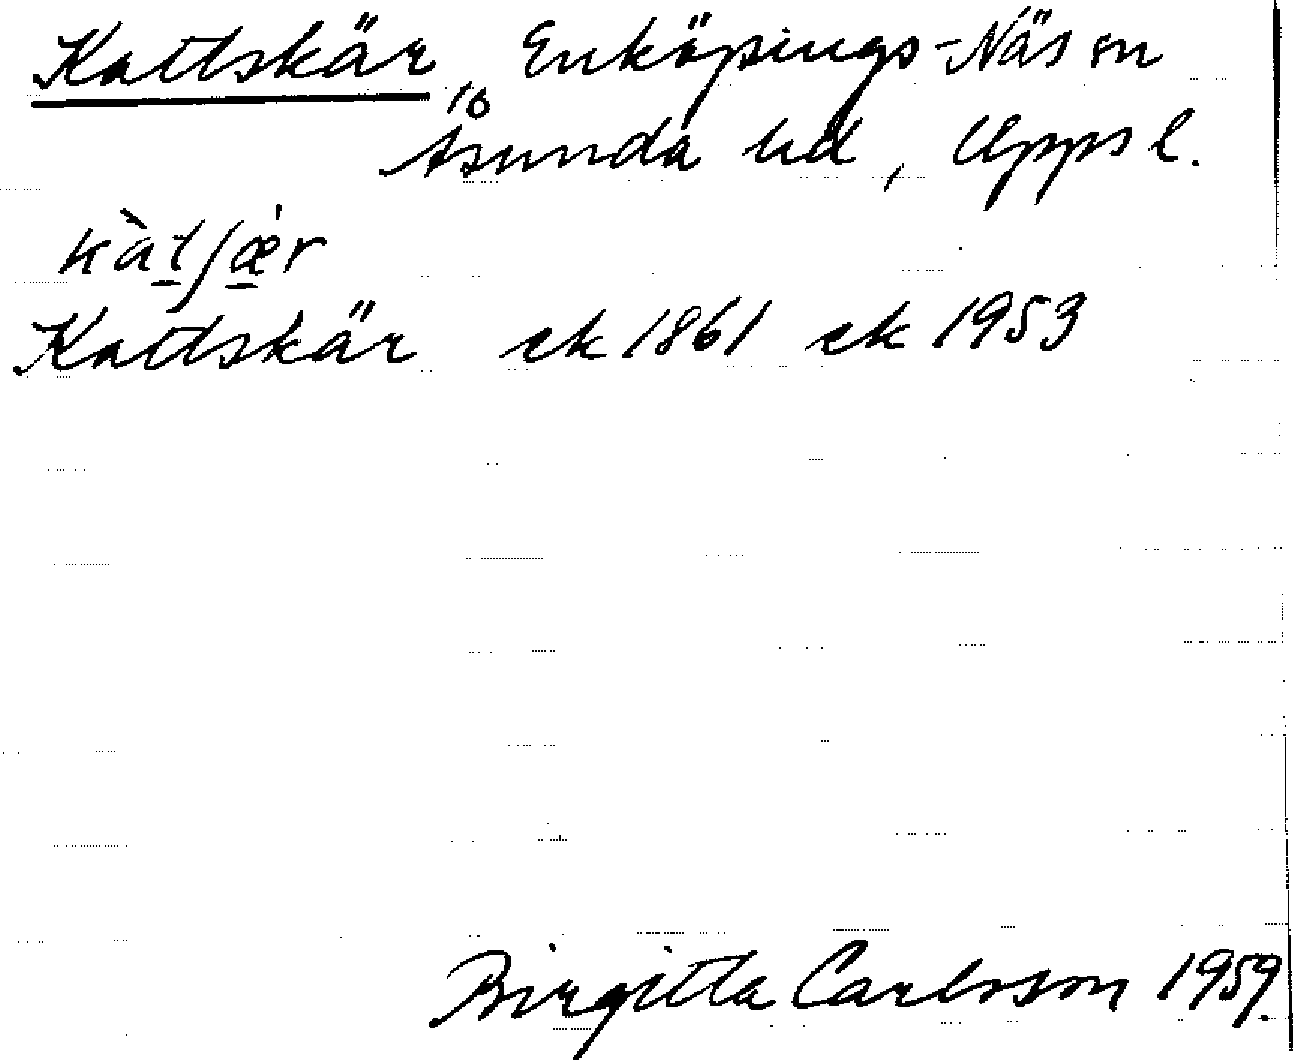 Kattskär, Enköpings-Näs sn
Åsunda hd, Upps l.
kàt̲ʃǽ̲r
Kattskär ek 1861 ek 1953
Birgitta Carlsson 1959.